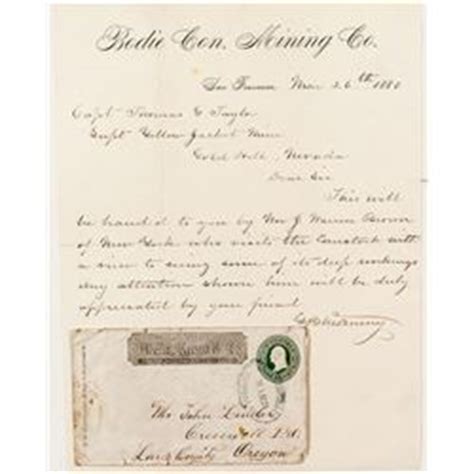 Bodie Con. Mining Co.
San Francisco Mar 26th 1880
Capt Thomas G Taylor
Supt Yellow Jacket Mine
Gold Hill, Nevada
Dear Sir
This will
be handed to you by Mr J. Warren Brown
of New York who visits the Comstock with
a view to seeing some of its deep workings
Any attention shown him will be duly
appreciated by your friend
Mr John
Creswell P.O.
Lane County Oregon